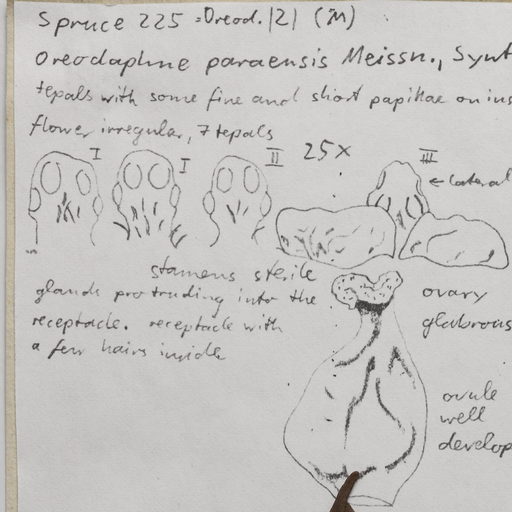 Spruce 225 = Oreod. |2| (M)
Oreodaphne paraensis Meissn., Synt
tepals with some fine and short papillae on ins
flower irregular, 7 tepals
I I II 25x III
← lateral
stamens sterile
glands protruding into the
receptacle. receptacle with
a few hairs inside
ovary
glabrous
ovule
well
develop